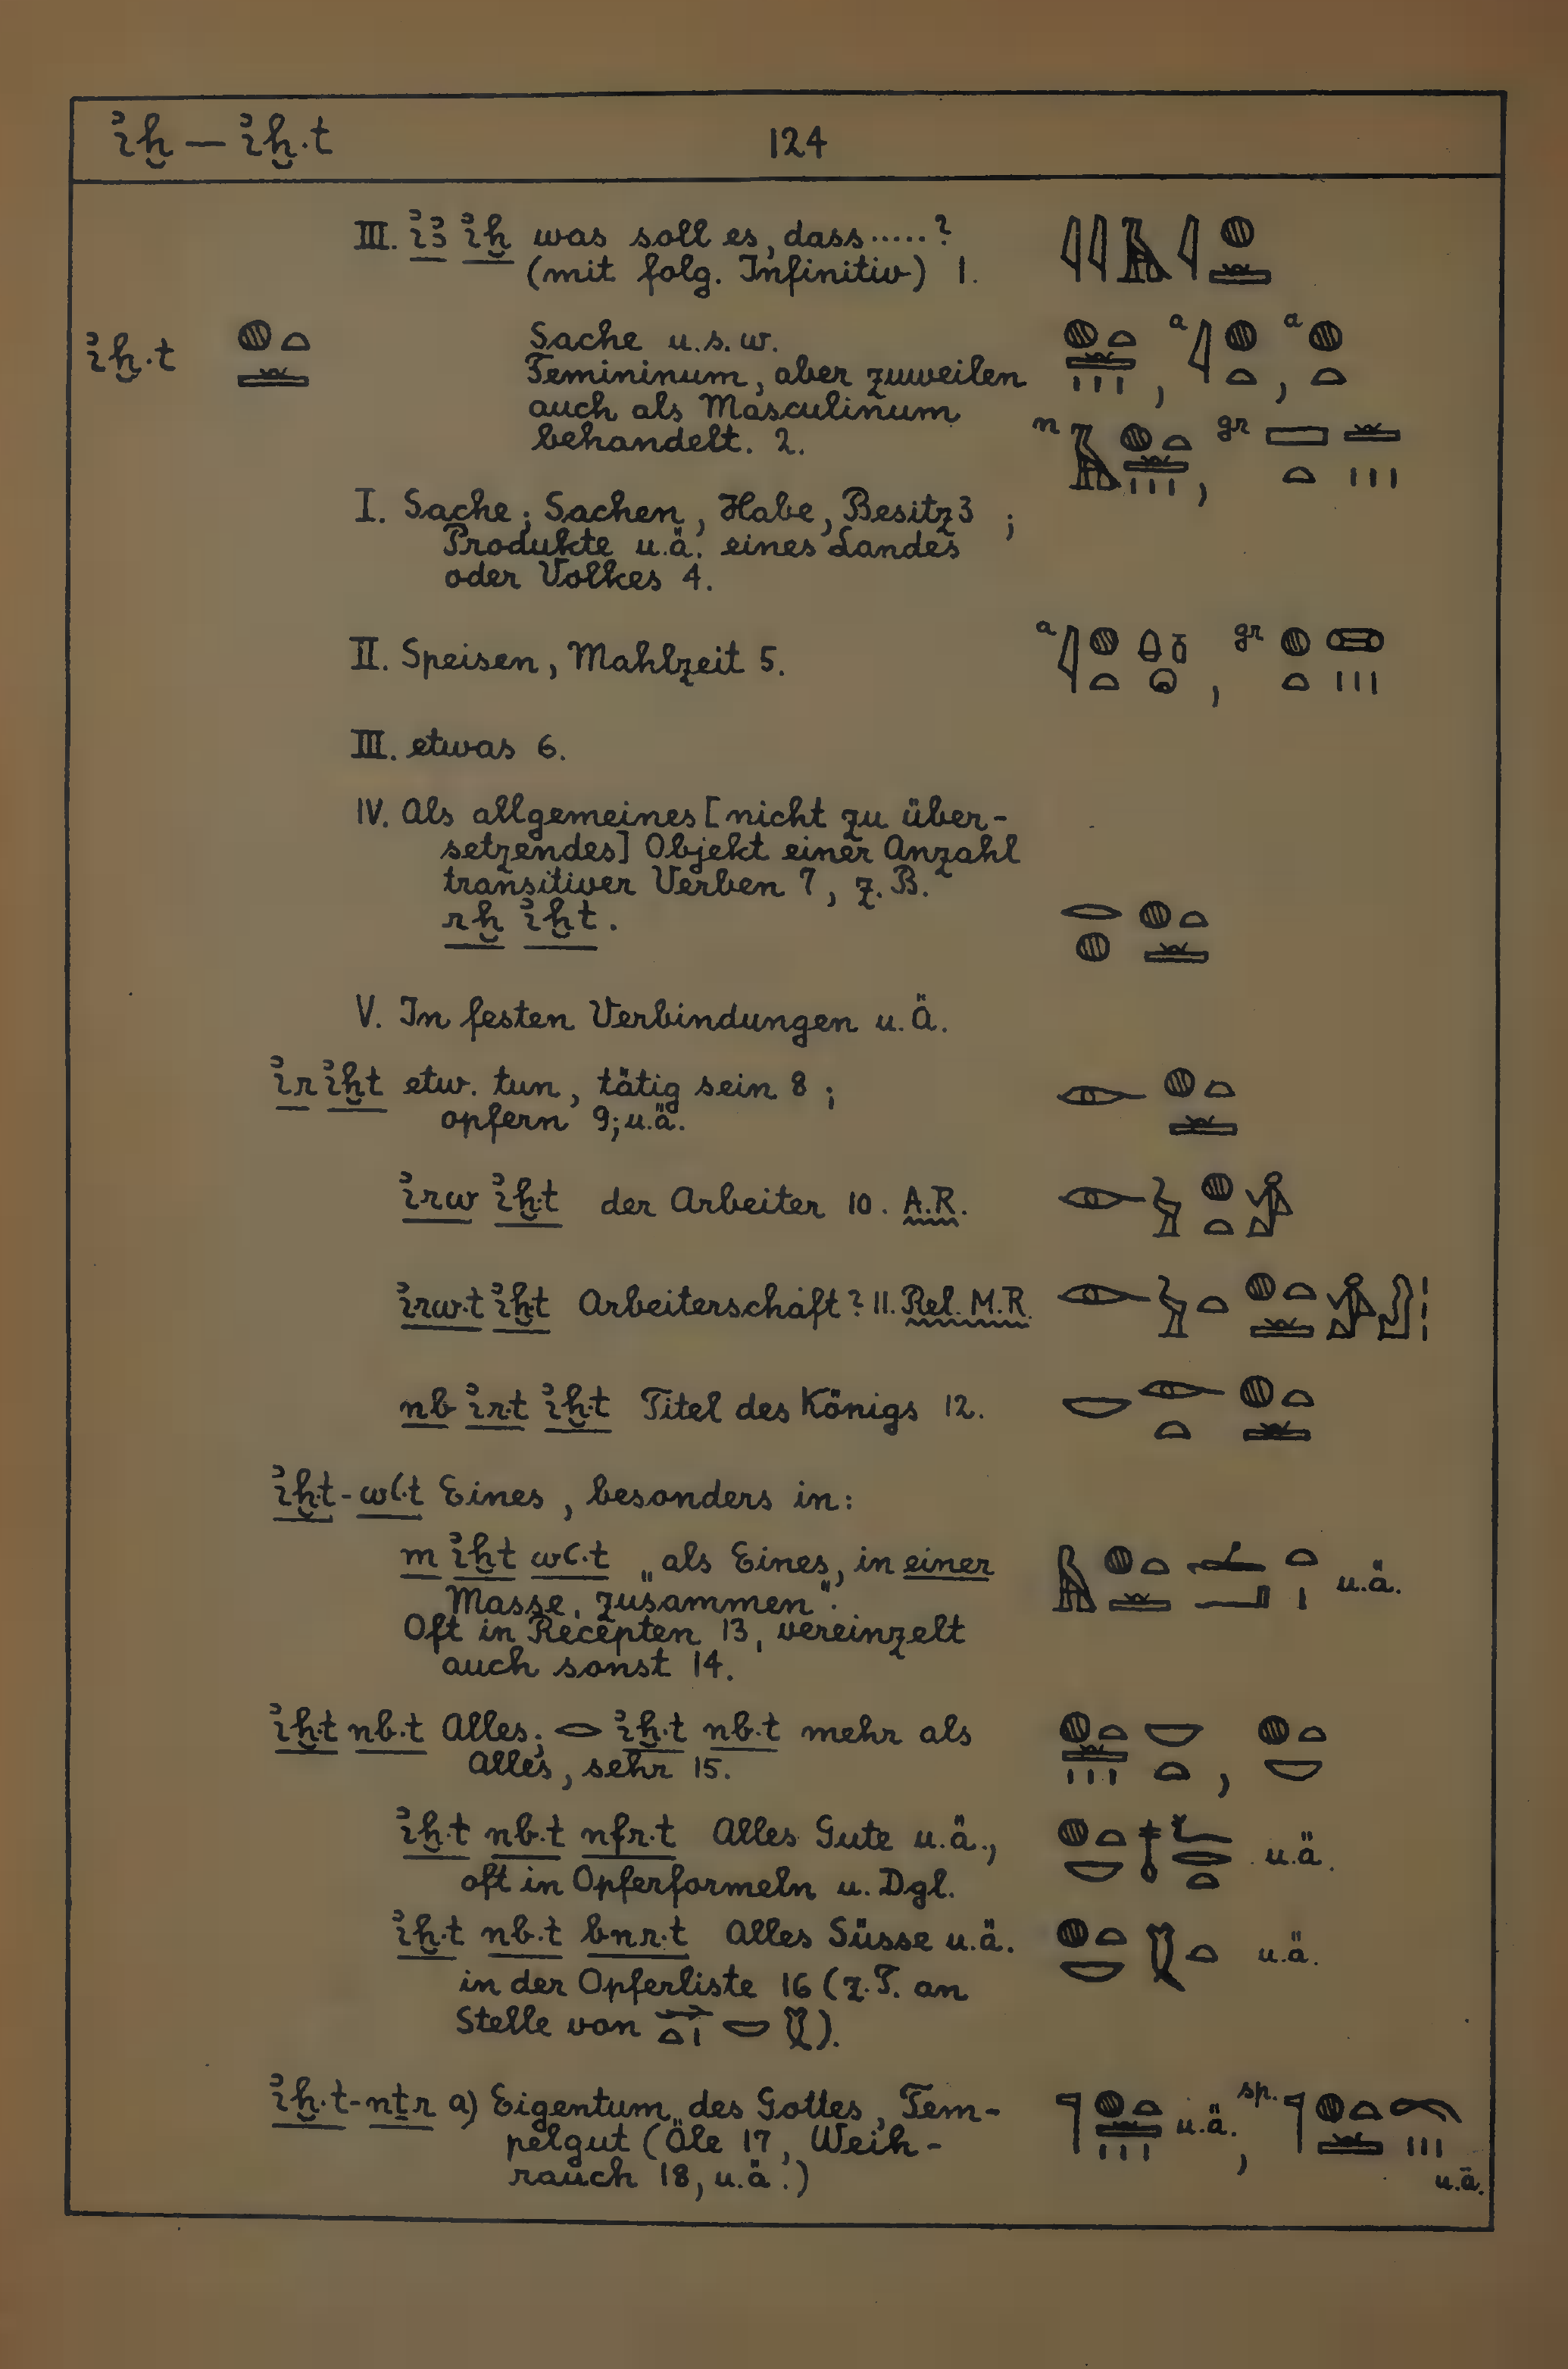 i҆ḫ — i҆ḫ·t 124
III. i҆ꜣ i҆ḫ was soll es, dass.....?
(mit folg. Infinitiv) 1.
i҆ḫ·t 𓐍𓏏𓏛 Sache u.s.w.
Femininum, aber zuweilen
auch als Masculinum
behandelt. 2.
I. Sache; Sachen, Habe, Besitz 3 ;
Produkte u.ä. eines Landes
oder Volkes 4.
II. Speisen, Mahlzeit 5.
III. etwas 6.
IV. Als allgemeines [nicht zu über-
setzendes] Objekt einer Anzahl
transitiver Verben 7, z.B.
rḫ i҆ḫt. 𓂋𓐍 𓐍𓏏𓏛
V. In festen Verbindungen u.Ä.
i҆r i҆ḫt etw. tun, tätig sein 8 ; 𓁹 𓐍𓏏𓏛
opfern 9; u.ä.
i҆rw i҆ḫ·t der Arbeiter 10. A.R.
i҆rw·t i҆ḫ·t Arbeiterschaft? 11. Rel. M.R.
nb i҆r·t i҆ḫ·t Titel des Königs 12. 𓎟 𓁹𓏏 𓐍𓏏𓏛
i҆ḫ·t-wꜥ·t Eines, besonders in:
m i҆ḫt wꜥ·t „als Eines, in einer u.ä.
Masse, zusammen".
Oft in Recepten 13, vereinzelt
auch sonst 14.
i҆ḫ·t nb·t Alles; 𓂋 i҆ḫ·t nb·t mehr als 𓐍𓏏𓏛𓏥 𓎟𓏏 , 𓐍𓏏𓎟
Alles, sehr 15.
i҆ḫ·t nb·t nfr·t Alles Gute u.ä., 𓐍𓏏𓎟 𓄤𓆑𓂋𓏏 u.ä.
oft in Opferformeln u. Dgl.
i҆ḫ·t nb·t bnr·t Alles Süsse u.ä. 𓐍𓏏𓎟 𓇛𓏏 u.ä.
in der Opferliste 16 (z.T. an
Stelle von 𓎟 𓇛).
i҆ḫ·t-nṯr a) Eigentum des Gottes, Tem- 𓊹 𓐍𓏏𓏛𓏥 u.ä., sp. 𓊹 𓐍𓏏𓏛𓏥 u.ä.
pelgut (Öle 17, Weih-
rauch 18, u.ä.)